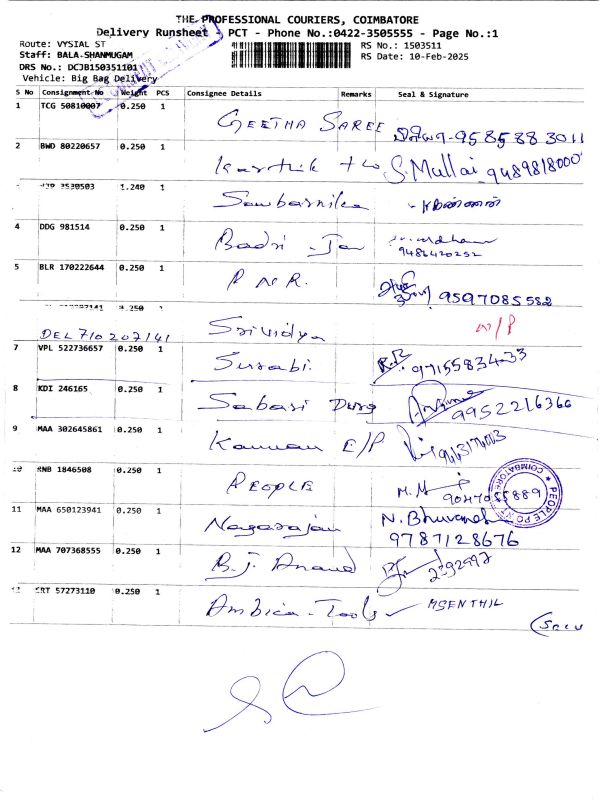 THE PROFESSIONAL COURIERS, COIMBATORE
Delivery Runsheet - PCT - Phone No.:0422-3505555 - Page No.:1
Route: VYSIAL ST
RS No.: 1503511
Staff: BALA-SHANMUGAM
RS Date: 10-Feb-2025
DRS No.: DCJB150351101
Vehicle: Big Bag Delivery
S No Consignment No Weight PCS Consignee Details Remarks Seal & Signature
1 TCG 50810007 0.250 1 GEETHA SAREE 9585883011
2 BWD 80220657 0.250 1 Karthik S. Mullai 9489818000
3530503 1.240 1
4 DDG 981514 0.250 1 Badri 9486420252
5 BLR 170222644 0.250 1 P N R. 9597085582
DEL 710207141 0.250 1 Srividya
7 VPL 522736657 0.250 1 Surabi. 9715583433
8 KDI 246165 0.250 1 Sabari Drug 9952216366
9 MAA 302645861 0.250 1 Kannan E/P
RNB 1846508 0.250 1 PEOPLE 9047055889
PEOPLE POINT COIMBATORE
11 MAA 650123941 0.250 1 Nagarajan N. Bhuvanesh
9787128676
12 MAA 707368555 0.250 1 B.J. Anand 2392997
CRT 57273110 0.250 1 Ambica Tools MSENTHIL